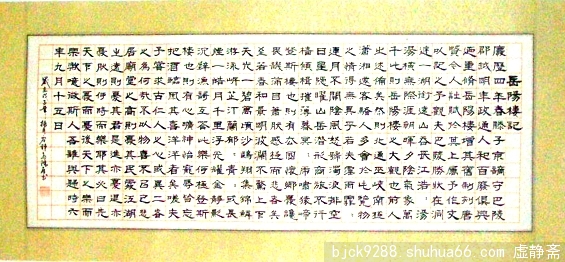 岳陽樓記
慶歷四年春滕子京謫守巴陵
郡越明年政通人和百廢具興
迺重修岳陽樓增其舊制刻唐
賢今人詩賦於其上屬予作文
以記之予觀夫巴陵勝狀在洞
庭一湖銜遠山吞長江浩浩湯
湯橫無際涯朝暉夕陰氣象萬
千此則岳陽樓之大觀也前人
之述備矣然則北通巫峽南極
瀟湘遷客騷人多會於此覽物
之情得無異乎若夫霪雨霏霏
連月不開陰風怒號濁浪排空
日星隱曜山岳潛形商旅不行
檣傾楫摧薄暮冥冥虎嘯猿啼
登斯樓也則有去國懷鄉憂讒
畏譏滿目蕭然感極而悲者矣
至若春和景明波瀾不驚上下
天光一碧萬頃沙鷗翔集錦鱗
游泳岸芷汀蘭郁郁青青而或長
煙一空皓月千里浮光躍金靜影
沉璧漁歌互答此樂何極登斯
樓也則有心曠神怡寵辱偕忘
把酒臨風其喜洋洋者矣嗟夫
予嘗求古仁人之心或異二者
之為何哉不以物喜不以己悲
居廟堂之高則憂其民處江湖
之遠則憂其君是進亦憂退亦
憂然則何時而樂耶其必曰先
天下之憂而憂後天下之樂而
樂歟噫微斯人吾誰與歸時六
年九月十五日
bjck9288.shuhua66.com 虚静斋